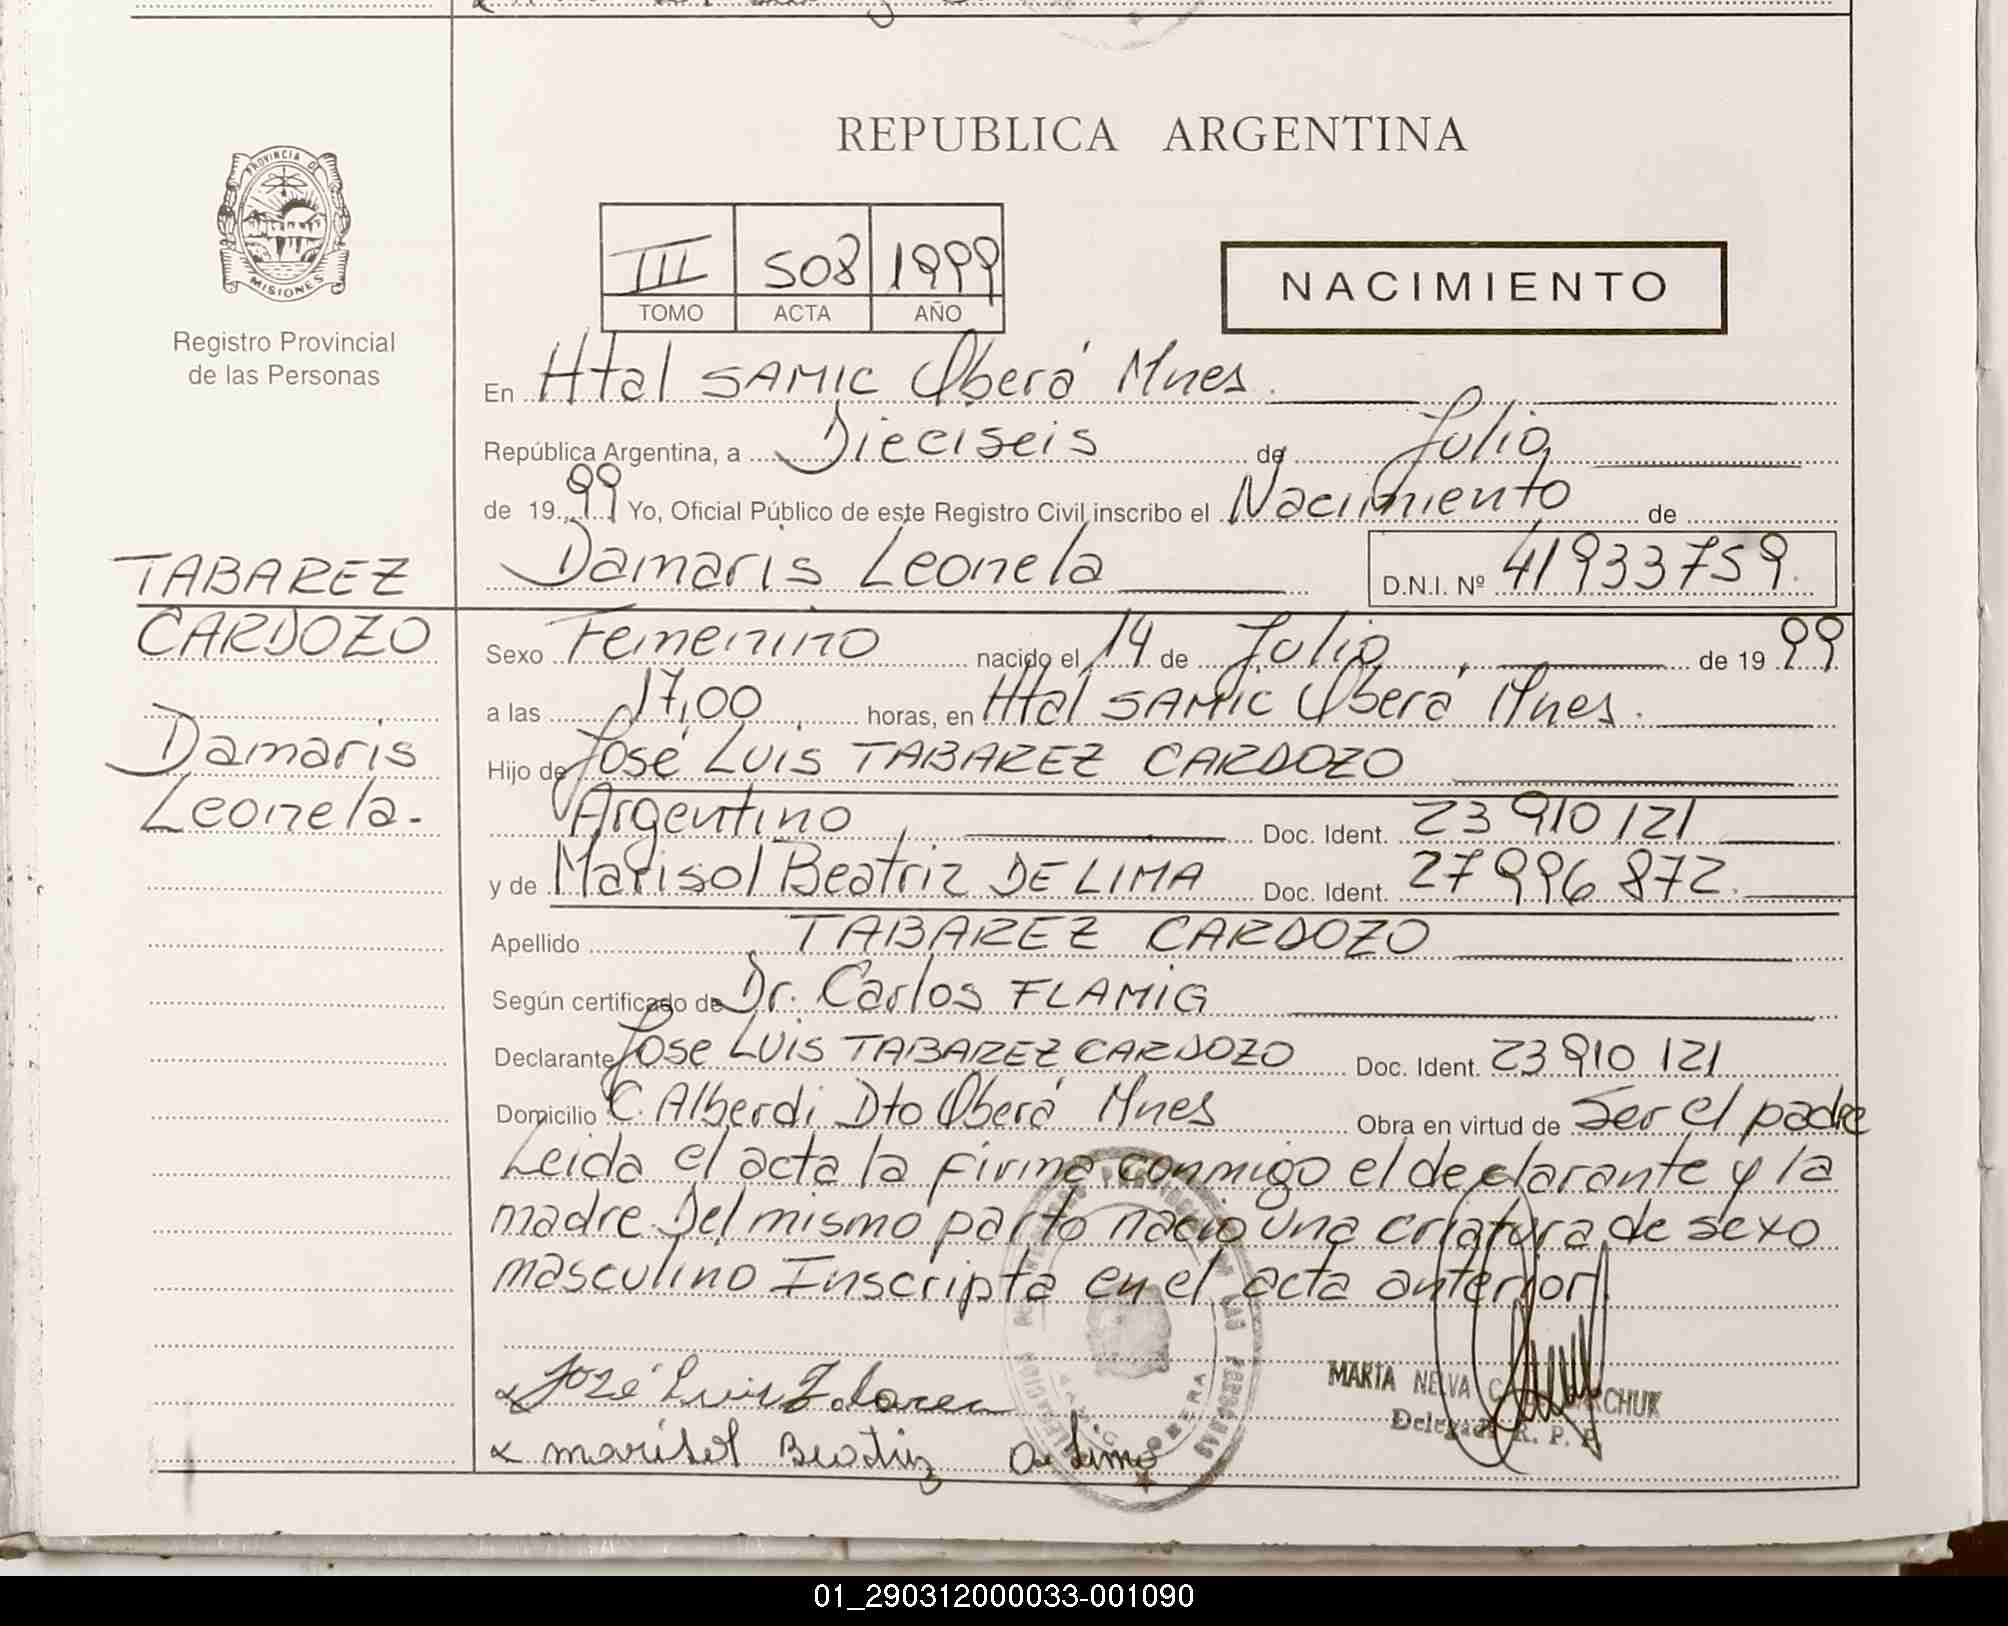 REPUBLICA ARGENTINA
PROVINCIA DE
MISIONES
Registro Provincial
de las Personas
III 508 1999
TOMO ACTA AÑO
NACIMIENTO
En Htal SAMIC Oberá Mnes.
República Argentina, a Dieciseis de Julio
de 1999 Yo, Oficial Público de este Registro Civil inscribo el Nacimiento de
Damaris Leonela D.N.I. Nº 41933759.
TABAREZ
CARDOZO
Damaris
Leonela.
Sexo Femenino nacido el 14 de Julio de 1999
a las 17,00 horas, en Htal SAMIC Oberá Mnes.
Hijo de José Luis TABAREZ CARDOZO
Argentino Doc. Ident. 23 910 121
y de Marisol Beatriz DE LIMA Doc. Ident. 27 996 872.
Apellido TABAREZ CARDOZO
Según certificado de Dr. Carlos FLAMIG
Declarante Jose Luis TABAREZ CARDOZO Doc. Ident. 23 910 121
Domicilio C. Alberdi Dto Oberá Mnes Obra en virtud de Ser el padre
Leida el acta la firma conmigo el declarante y la
madre. Del mismo parto nacio una criatura de sexo
masculino Inscripta en el acta anterior.
José Luis
marisol Beatriz De Lima
OBERA
MARIA NELVA
Delegada R. P. P.
01_290312000033-001090